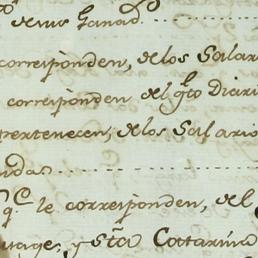 de sus Ganad.ˢ
corresponden, de los Salari
corresponden del gᵗᵒ Diari
pertenecen, de los Salario
ndas
q.ᵉ le corresponden, del
y Sᵗᵃ Catarina